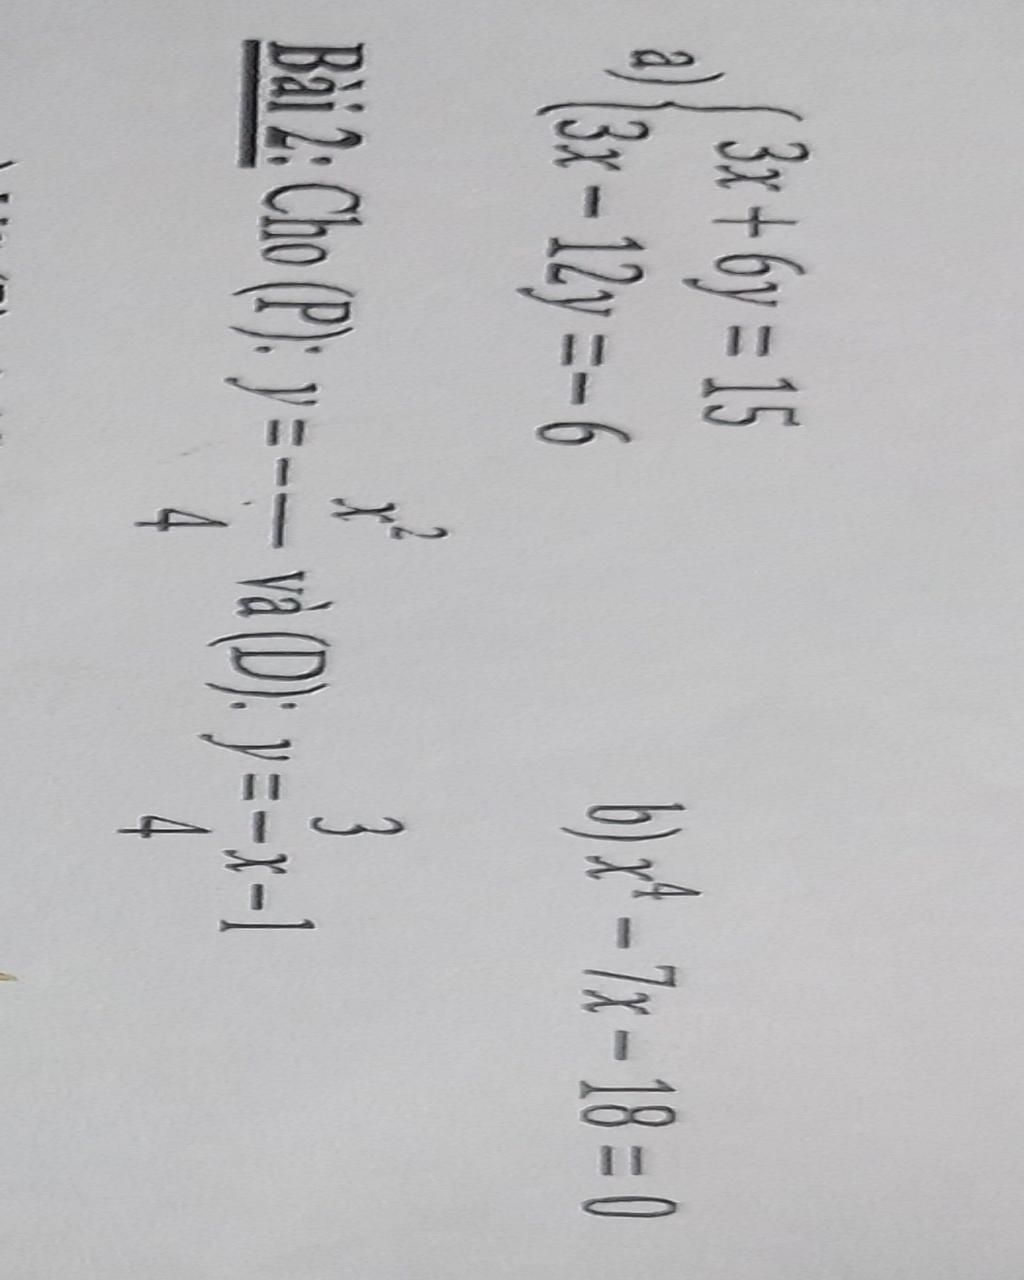 a) { 3x + 6y = 15
3x − 12y = − 6
b) x⁴ − 7x − 18 = 0
Bài 2: Cho (P): y = − x²/4 và (D): y = 3/4 x − 1